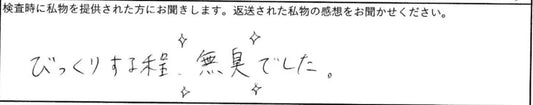 検査時に私物を提供された方にお聞きします。返送された私物の感想をお聞かせください。
びっくりする程、無臭でした。